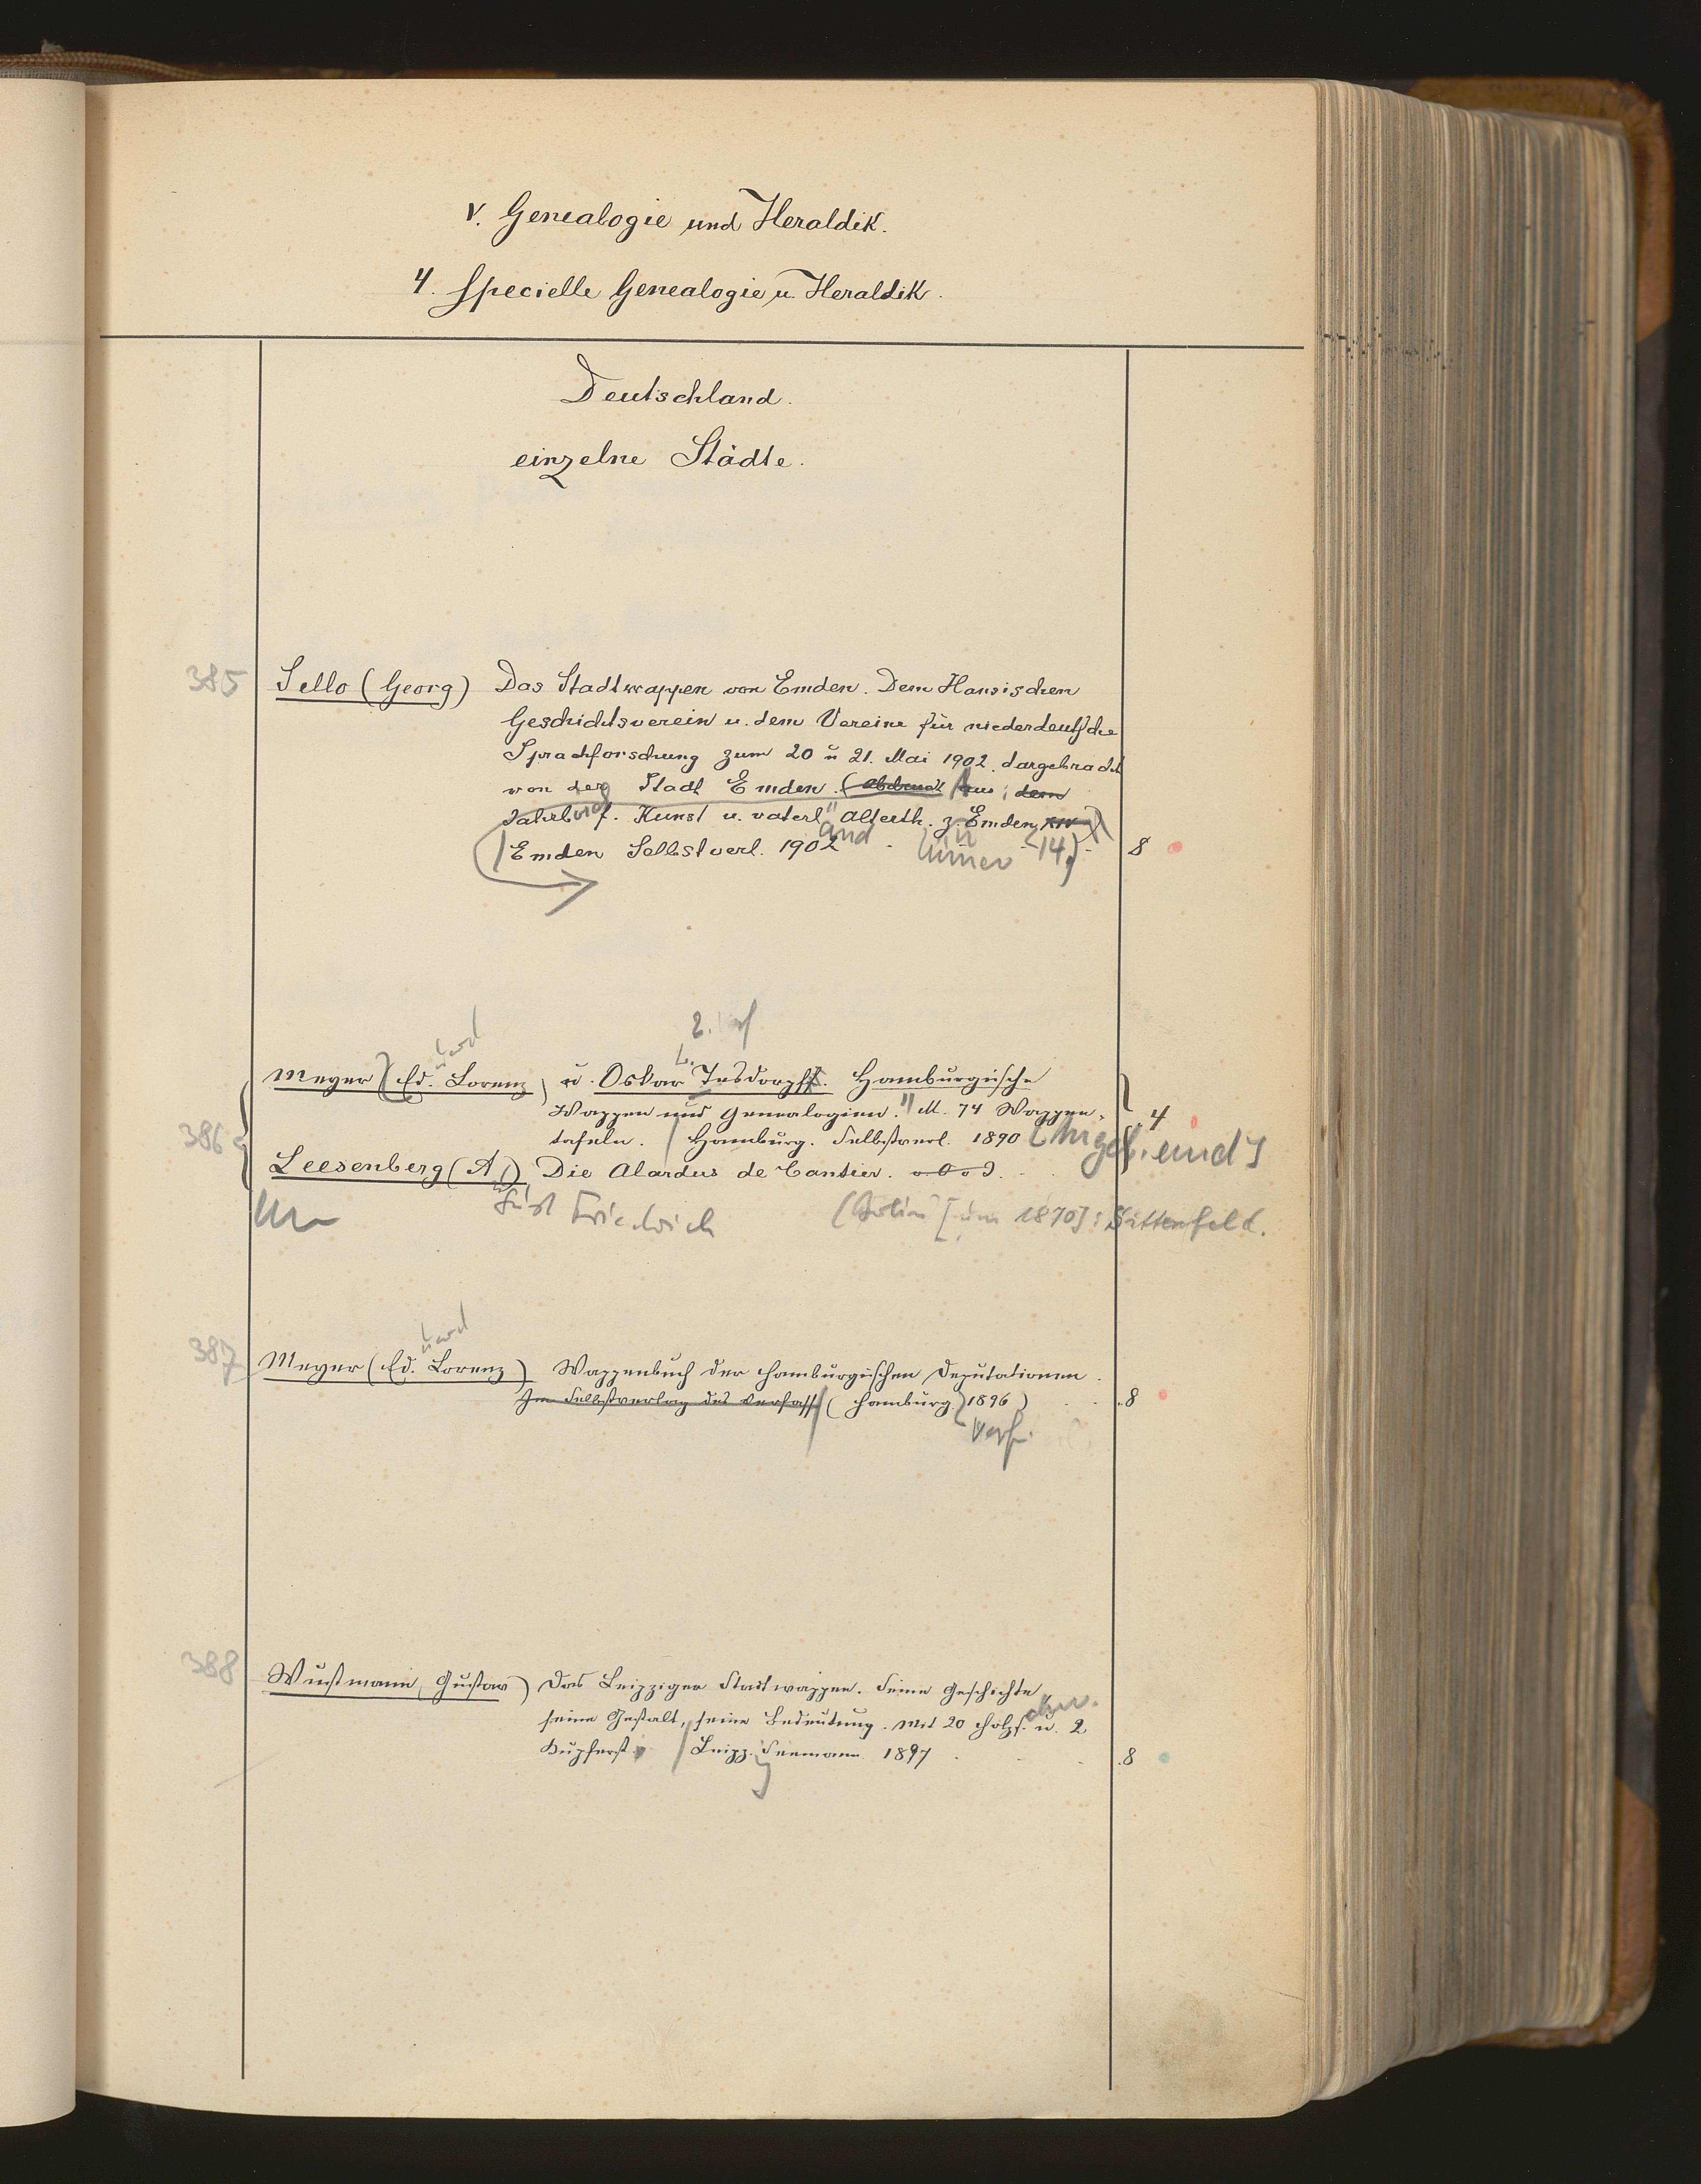 V. Genealogie und Heraldik.
4. Specielle Genealogie u. Heraldik.
Deutschland.
einzelne Städte.
385 Sello (Georg) Das Stadtwappen von Emden. Dem Hansischen
Geschichtsverein u. dem Vereine für niederdeutsche
Sprachforschung zum 20 u 21. Mai 1902. dargebracht
von der Stadt Emden. (Abdruck Aus: dem
Jahrbuch f. Kunst u. vaterl. Alterth. z. Emden XIV)
and 14)
Emden Selbstverl. 1902 8
2.
uard L.
Meyer (Ed. Lorenz) u. Oskar Tesdorpf. Hamburgische
Wappen und Genealogien. M. 74 Wappen-
386 tafeln. Hamburg. Selbstverl. 1890 [Angeb. sind] 4
Leesenberg (A.) Die Alardus de Cantier. o. O. o J.
Friedrich (Berlin [um 1870]: Sittenfeld.
uard
387 Meyer (Ed. Lorenz) Wappenbuch der hamburgischen Deputationen.
Im Selbstverlag des Verfass. (Hamburg. 1896) 8
Verf.
388 Wustmann, Gustav) Das Leipziger Stadtwappen. Seine Geschichte,
seine Gestalt, seine Bedeutung. Mit 20 Holzs. u. 2
Kupferst. Leipz. Seemann 1897 8